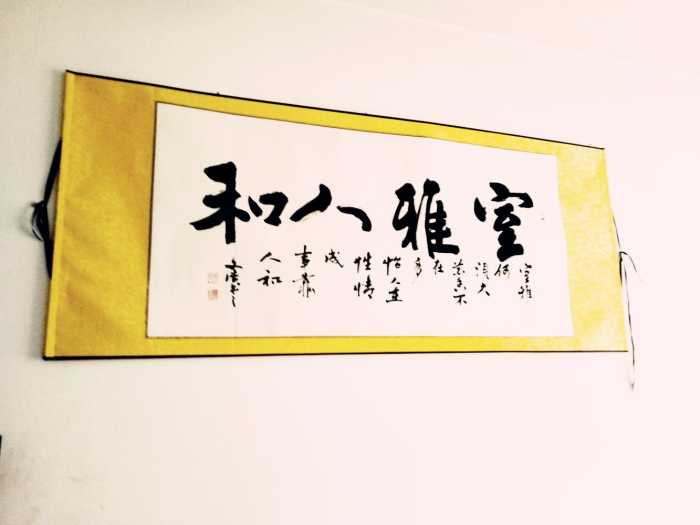 室雅人和
室雅
何
须大
花香不
在
多
怡人在
性情
成
事靠
人和